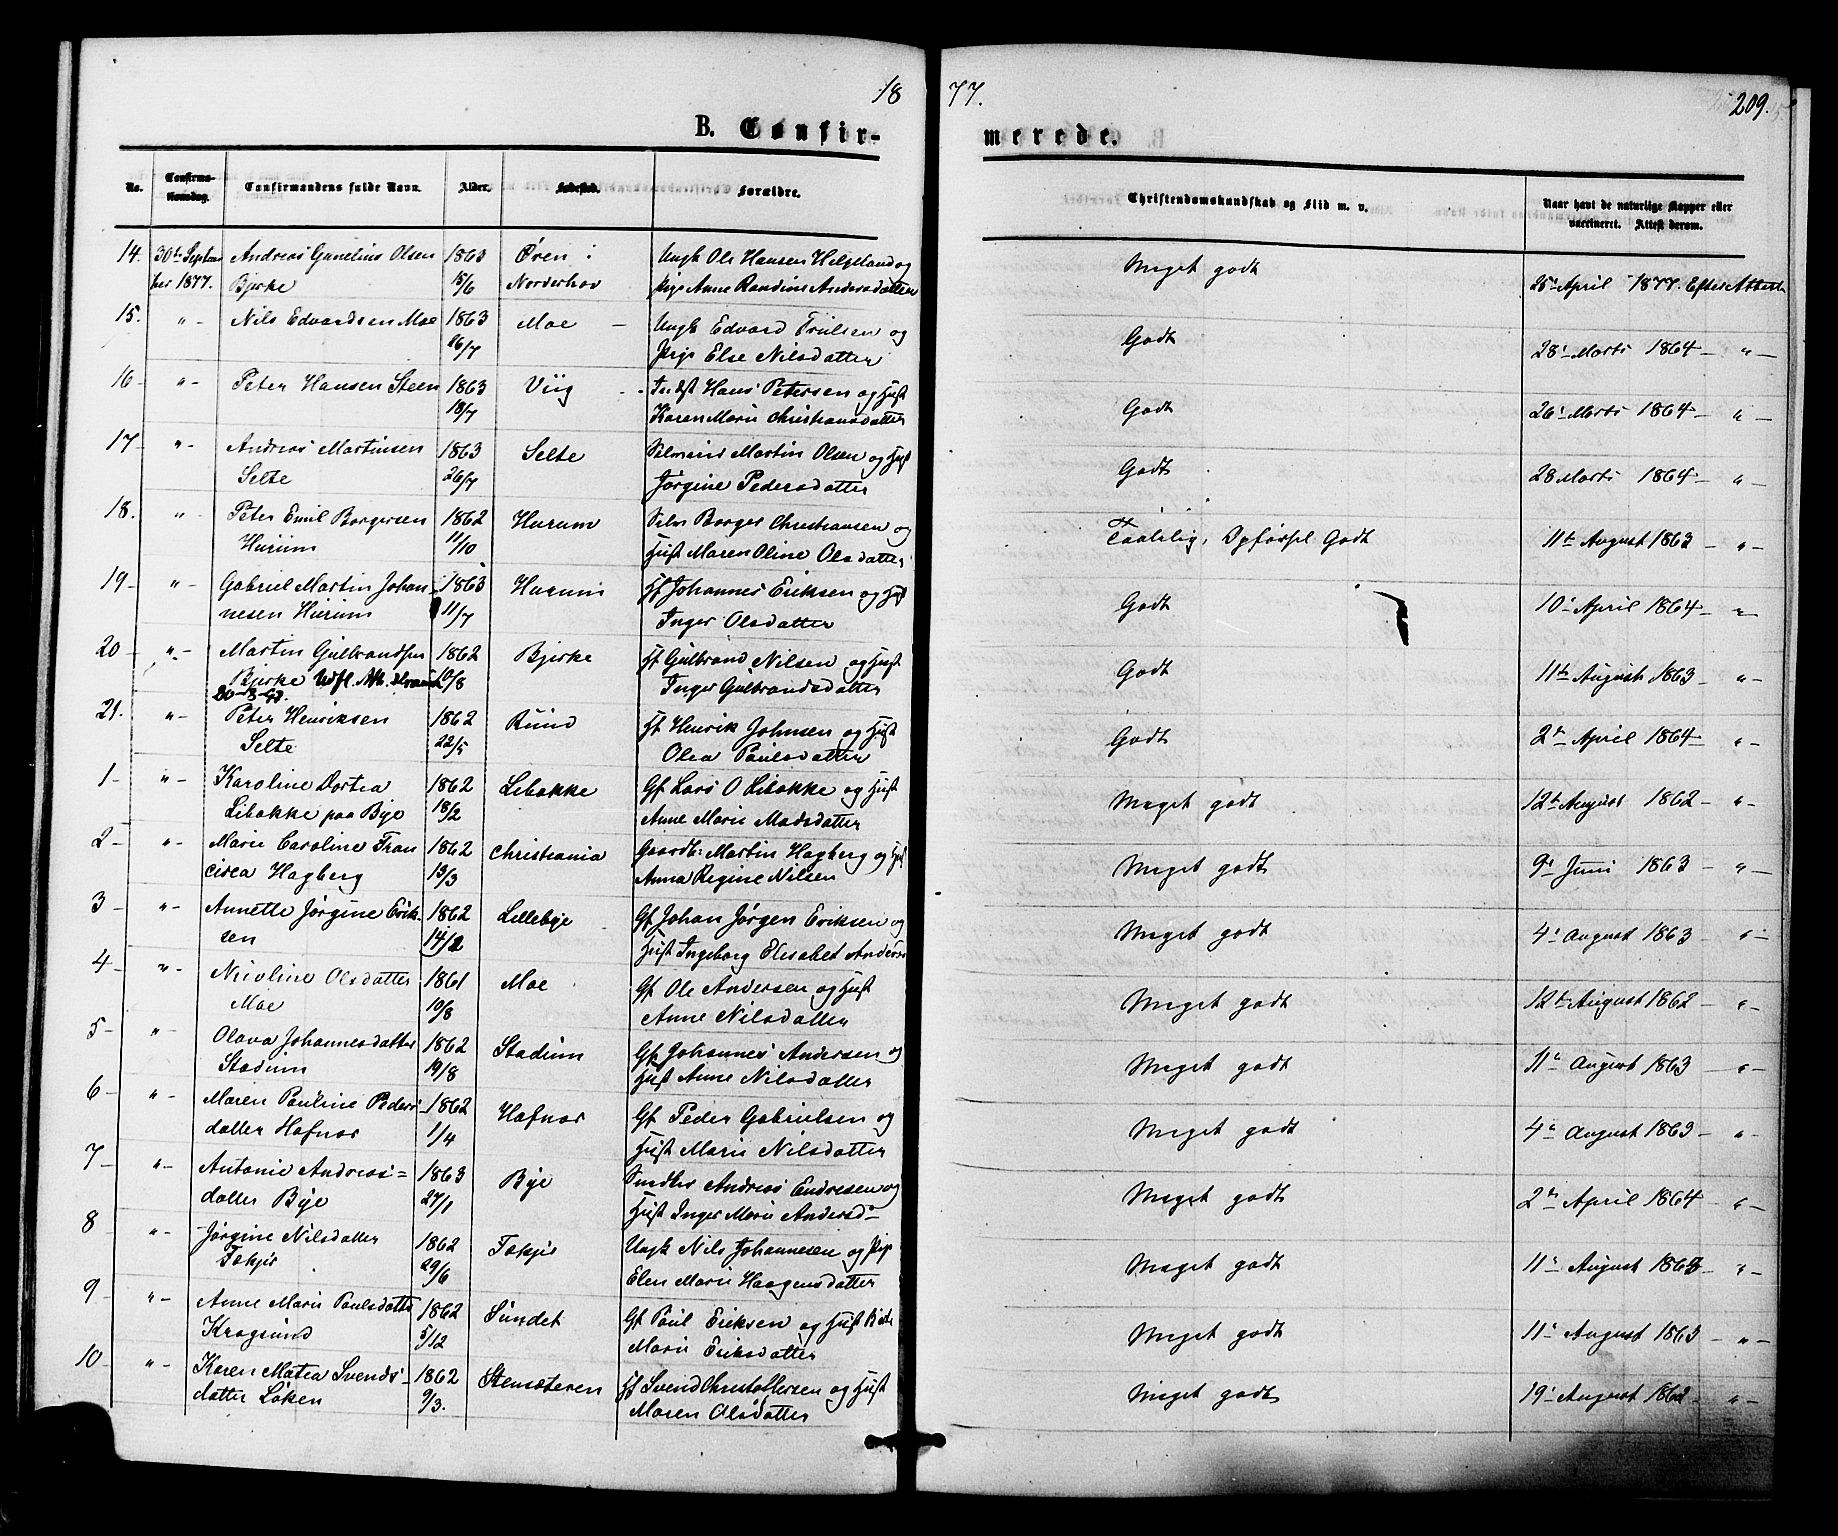 18 77. 209.
B. Confirmerede.
No. Confirmationsdag. Confirmandens fulde Navn. Alder. Fødested. Forældre. Christendomskundskab og Flid m. v. Naar havt de naturlige Kopper eller vaccineret. Attest derom.
14. 30te Septem- Andreas Gunelius Olsen 1863 Øren i Ungk Ole Hansen Helgeland og Meget godt 25de April 1877. Efter Attest
ber 1877. Bjerke 15/6 Norderhov Pige Anne Randine Andersdatter
15. " - Nils Edvardsen Moe 1863 Moe - Ungk Edvard Trulsen og Godt 28' Marts 1864 - " -
26/7 Pige Else Nilsdatter
16 - " - Peter Hansen Steen 1863 Viig - Indst Hans Petersen og Hust Godt 26' Marts 1864 - " -
18/7 Karen Marie Christiansdatter
17 - " - Andreas Martinsen 1863 Selte Selveier Martin Olsen og Hust Godt 28 Marts 1864 - " -
Selte 26/7 Jørgine Pedersdatter
18. " - Peter Emil Borgersen 1862 Hurum Selv Borger Christiansen og Taalelig, Opførsel Godt 11te August 1863 - " -
Hurum 11/10 Hust Maren Oline Olsdatter
19 - " - Gabriel Martin Johan- 1863 Hurum Hf Johannes Eriksen og Hust Godt 10' April 1864 - " -
nesen Hurum 11/7 Inger Olsdatter
20 - " - Martin Gulbrandsen 1862 Bjerke Hf Gulbrand Nilsen og Hust Godt 11te August 1863 - " -
Bjerke Udfl. Att. 10/8 Inger Gulbrandsdatter
21. " - Peter Henriksen 1862 Rund Hf Henrik Johnsen og Hust Godt 2de April 1864 - " -
Selte 22/5 Olea Paulsdatter
1 - " - Karoline Dortea 1862 Libakke Gf Lars O Libakke og Hust Meget godt 12te August 1862 - " -
Libakke paa Bye 18/2 Anne Marie Madsdatter
2 - " - Marie Caroline Fran 1862 Christiania Gaardb: Martin Hagberg og Hust Meget godt 9' Juni 1863 - " -
cisca Hagberg 13/3 Anna Regine Nilsen
3 - " - Annette Jørgine Erik- 1862 Lillebye Gf Johan Jørgen Eriksen og Meget godt 4' August 1863 - " -
sen 14/2 Hust Ingeborg Elisabet Anders
4 - " - Nicoline Olsdatter 1861 Moe Gf Ole Andersen og Hust Meget godt 12te August 1862 - " -
Moe 19/8 Anne Nilsdatter
5 - " - Olava Johannesdatter 1862 Stadum Gf Johannes Andersen og Meget godt 11' August 1863 - " -
Stadum 19/8 Hust Anne Nilsdatter
6 - " - Maren Pauline Peders- 1862 Hafnor Gf Peder Gabrielsen og Meget godt 4' August 1863 - " -
datter Hafnor 1/4 Hust Marie Nilsdatter
7 - " - Antonie Andreas= 1863 Bye Snedker Andreas Endresen og Meget godt 2de April 1864 - " -
datter Bye 27/1 Hust Inger Marie Andersd-
8 " - Jørgine Nilsdatter 1862 Fækjer Ungk Nils Johannesen og Pige Meget godt 11' August 1863 - " -
Fækjer 29/6 Elen Marie Haagensdatter
9 - " - Anne Marie Paulsdatter 1862 Sundet Gf Paul Eriksen og Hust Meget godt 11' August 1863 - " -
Kragsund 5/12 Marie Eriksdatter
10 - " - Karen Matea Svends- 1862 Stensæteren Hf Svend Christoffersen og Hust Meget godt 19' August 1862 - " -
datter Løken 9/3. Maren Olsdatter